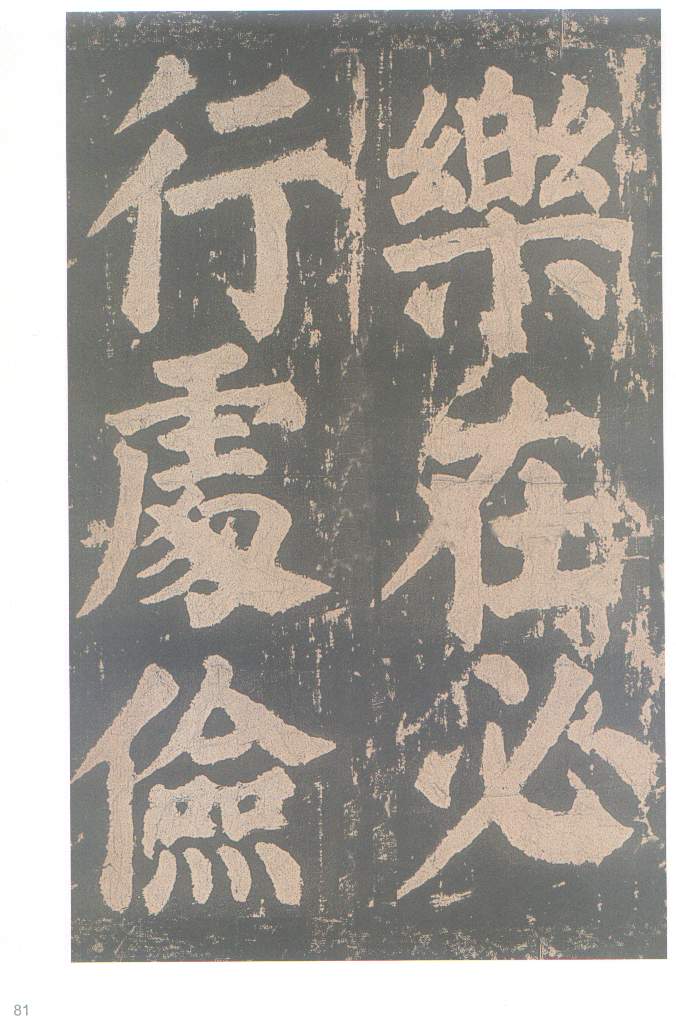 樂在必
行處儉
81